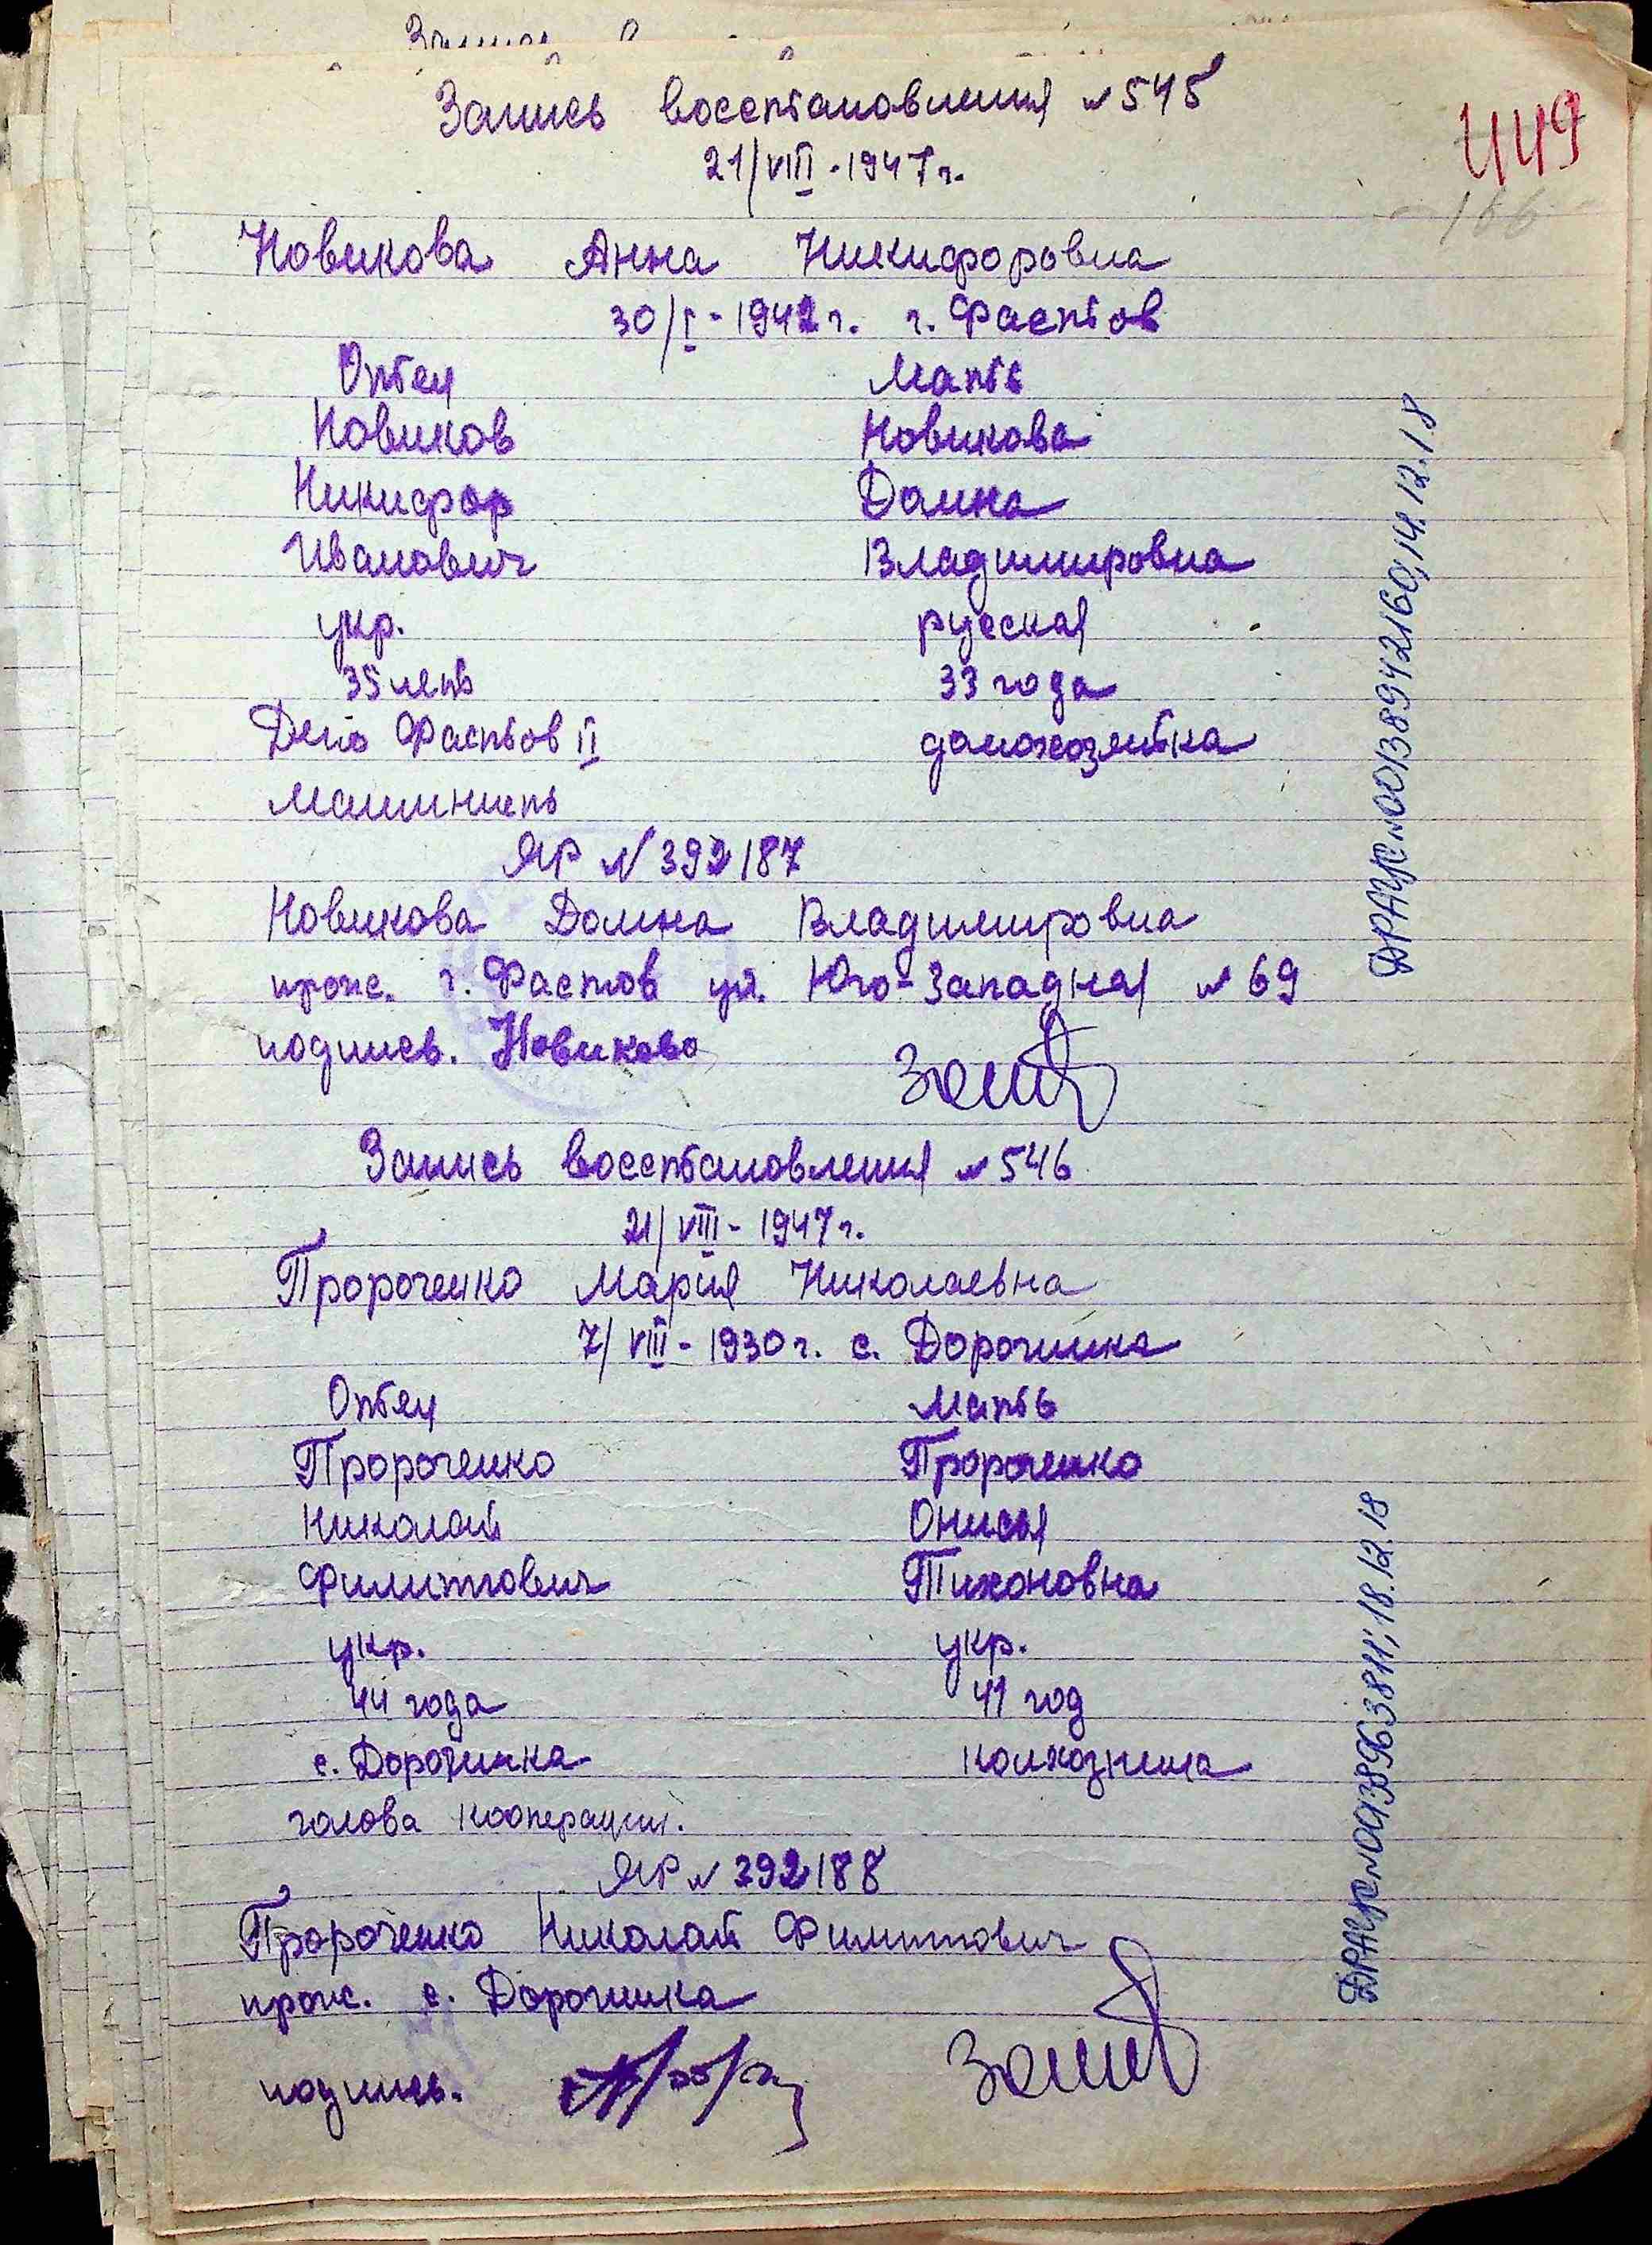 449
166
Запись восстановления № 545
21/VIII-1947 г.
Новикова Анна Никифоровна
30/I-1942 г. г. Фастов
Отец Мать
Новиков Новикова
Никифор Домна
Иванович Владимировна
укр. русская
35 лет 33 года
Депо Фастов II домохозяйка
Машинист
ЯР № 392187
Новикова Домна Владимировна
прож. г. Фастов ул. Юго-Западная № 69
подпись. Новикова
Запись восстановления № 546
21/VIII-1947 г.
Пророченко Мария Николаевна
7/VIII-1930 г. с. Дорогинка
Отец Мать
Пророченко Пророченко
Николай Онисья
Филиппович Тихоновна
укр. укр.
44 года 41 год
с. Дорогинка колхозница
голова кооперации.
ЯР № 392188
Пророченко Николай Филиппович
прож. с. Дорогинка
подпись.
ДРАЦС № 00138942160; 14.12.18
18.12.18